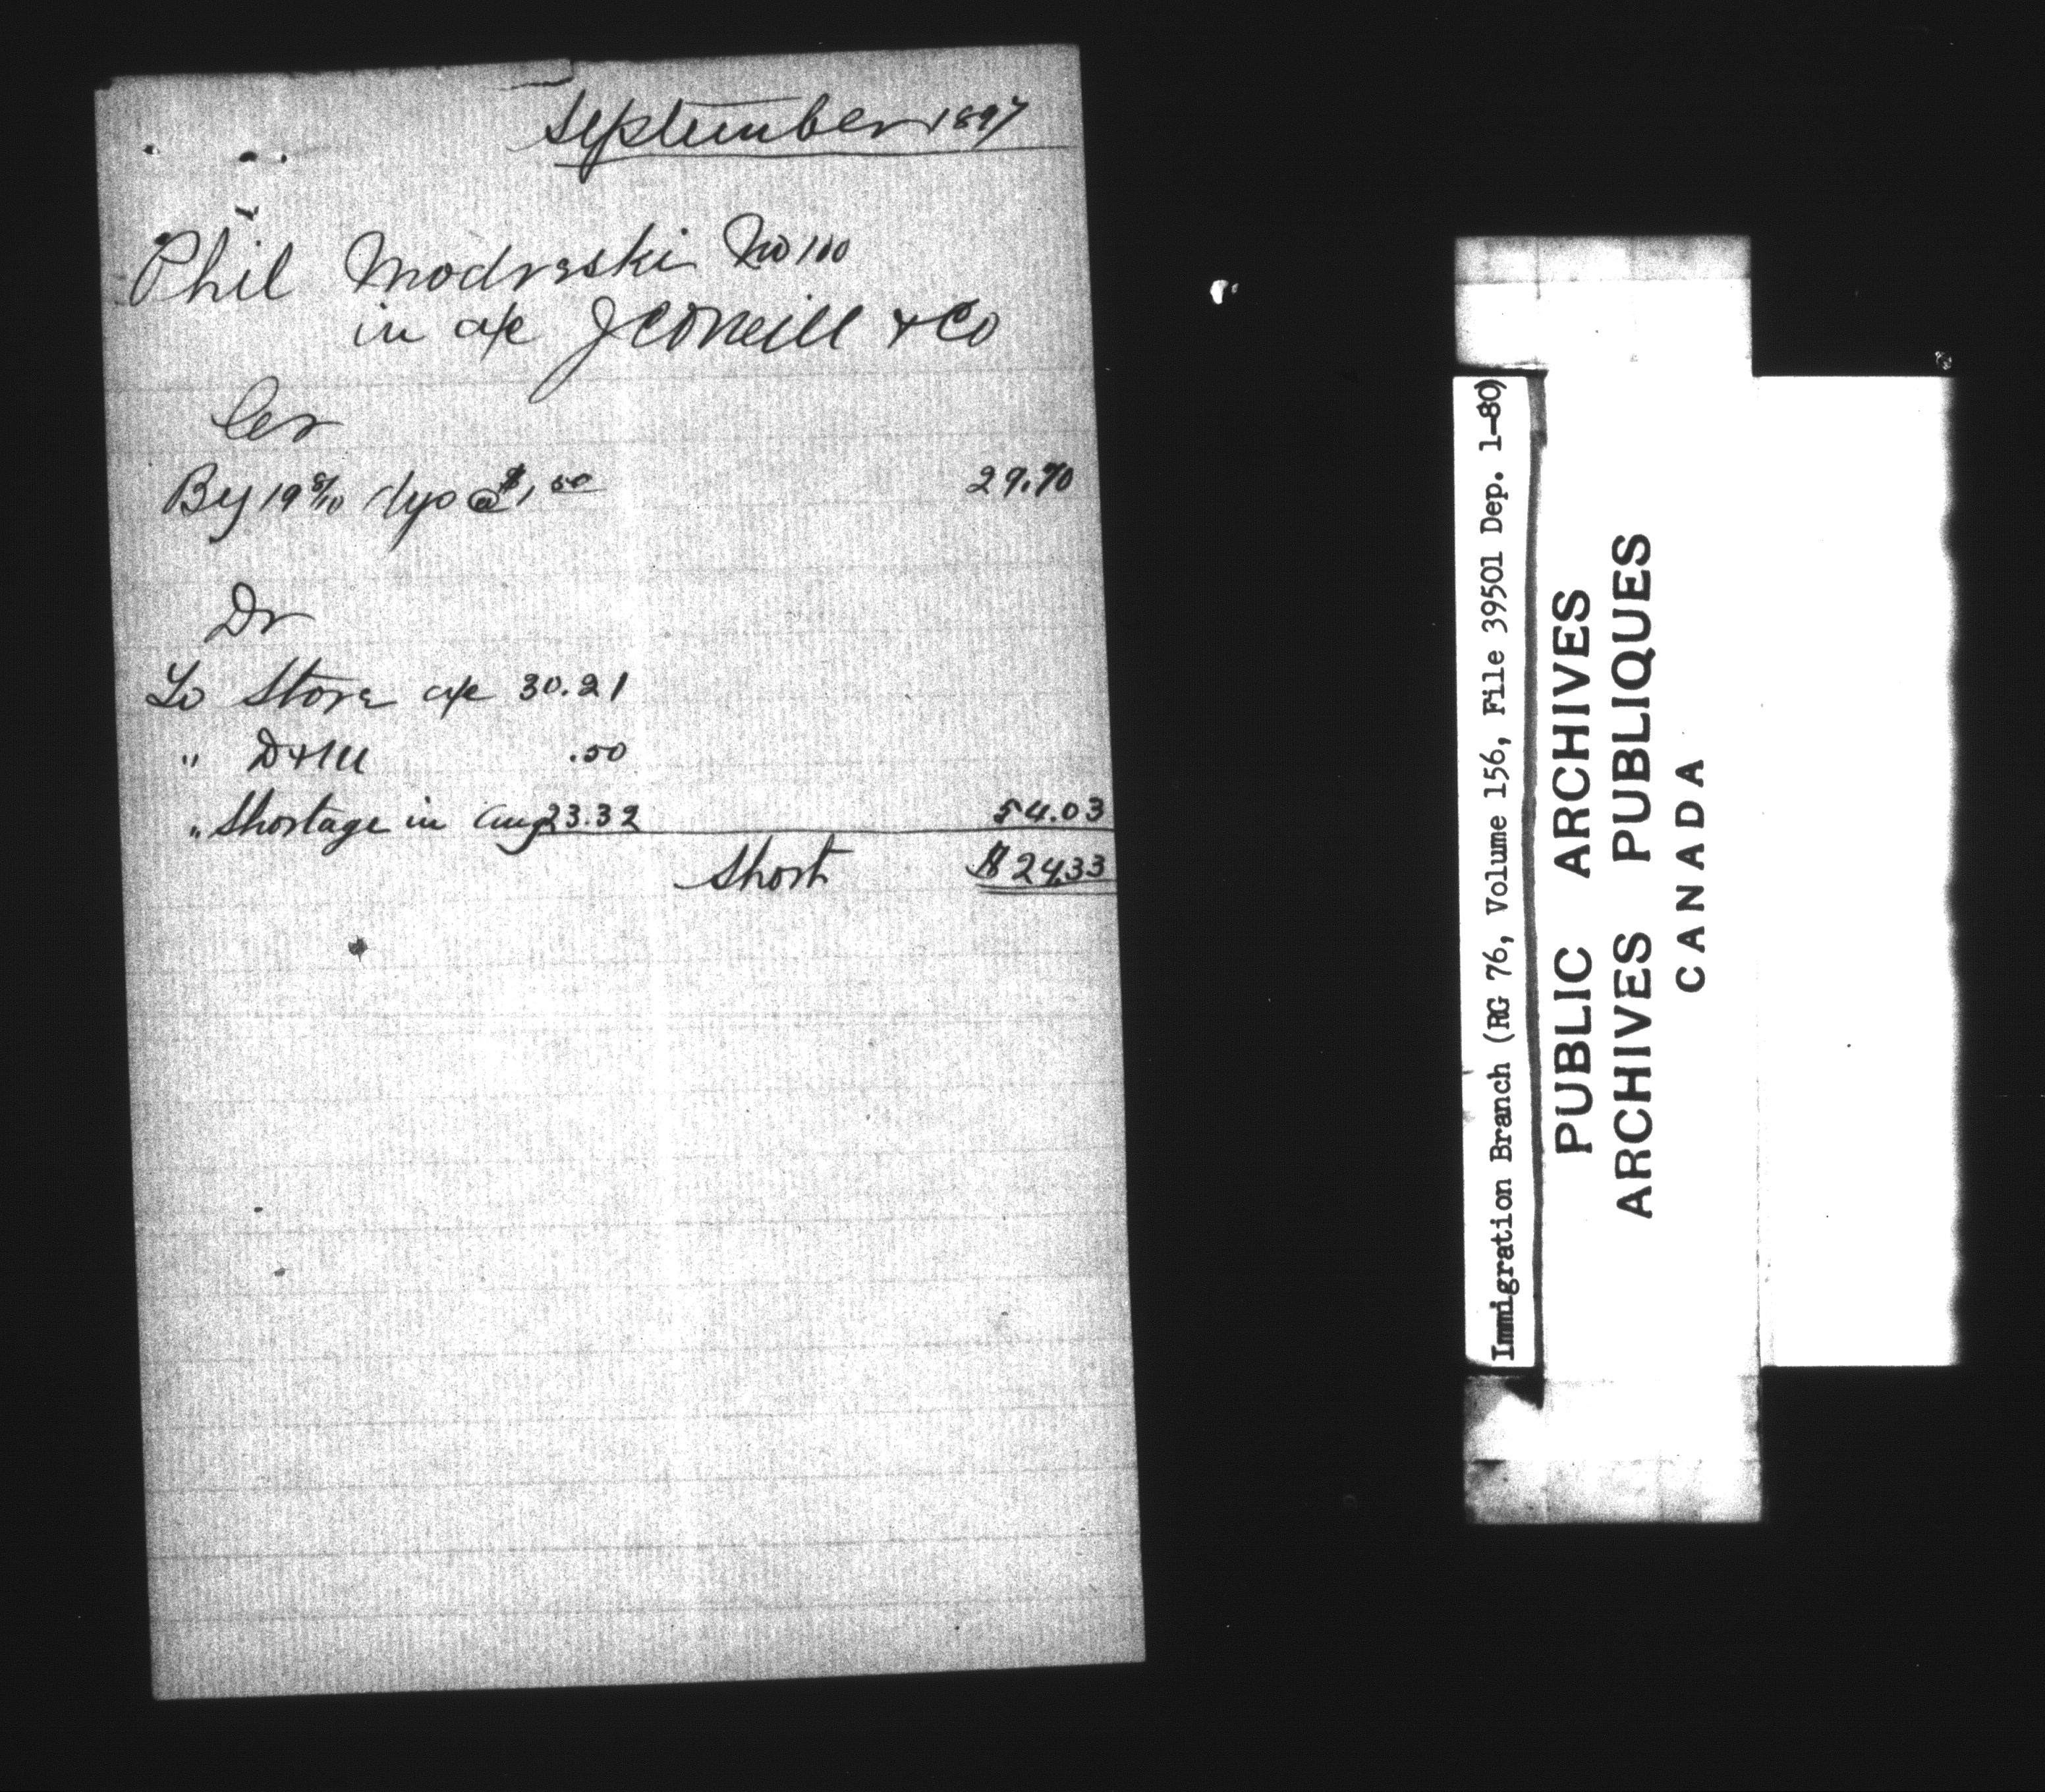 September 1897
Phil Modreski No 100
in a/c J C O'Neill & Co
Cr
By 19 8/10 dys @ $1.50 29.70
Dr
To Store a/c 30.21
" D & M .50
" Shortage in Aug 23.32 54.03
Short $24.33
Immigration Branch (RG 76, Volume 156, File 39501 Dep. 1-80)
PUBLIC ARCHIVES
ARCHIVES PUBLIQUES
CANADA